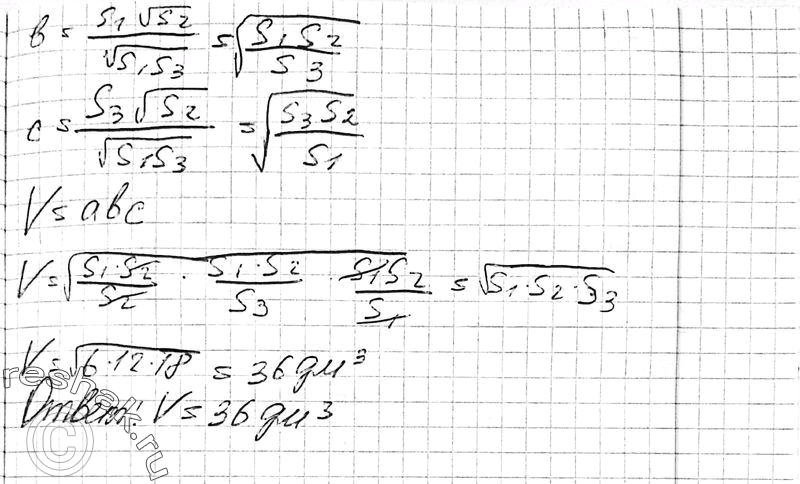 b = S₁√S₂ / √S₁S₃ = √(S₁S₂ / S₃)
c = S₃√S₂ / √S₁S₃ = √(S₃S₂ / S₁)
V = abc
V = √(S₁·S₂ / S₂ · S₁·S₂ / S₃ · S₁S₂ / S₁) = √S₁·S₂·S₃
V = √6·12·18 = 36 дм³
Ответ: V = 36 дм³
reshak.ru
©